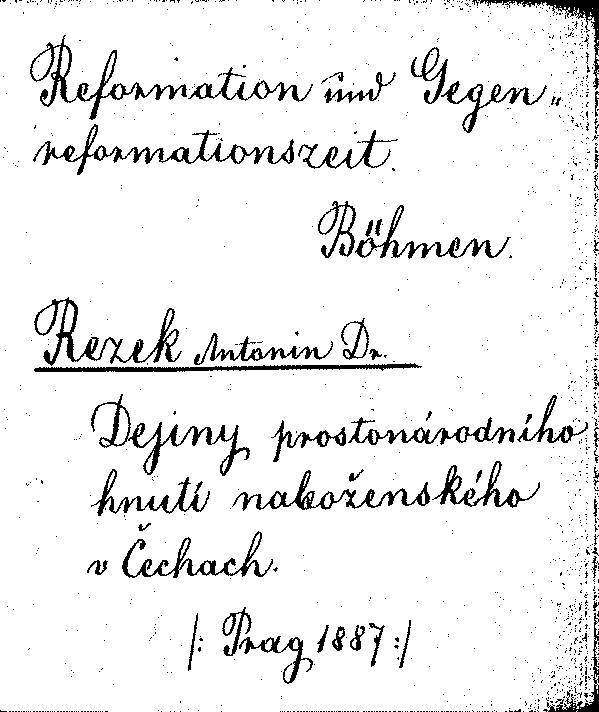 Reformation und Gegen„
reformationszeit.
Böhmen.
Rezek Antonin Dr.
Dejiny prostonárodního
hnutí naboženského
v Čechach.
/: Prag 1887 :/